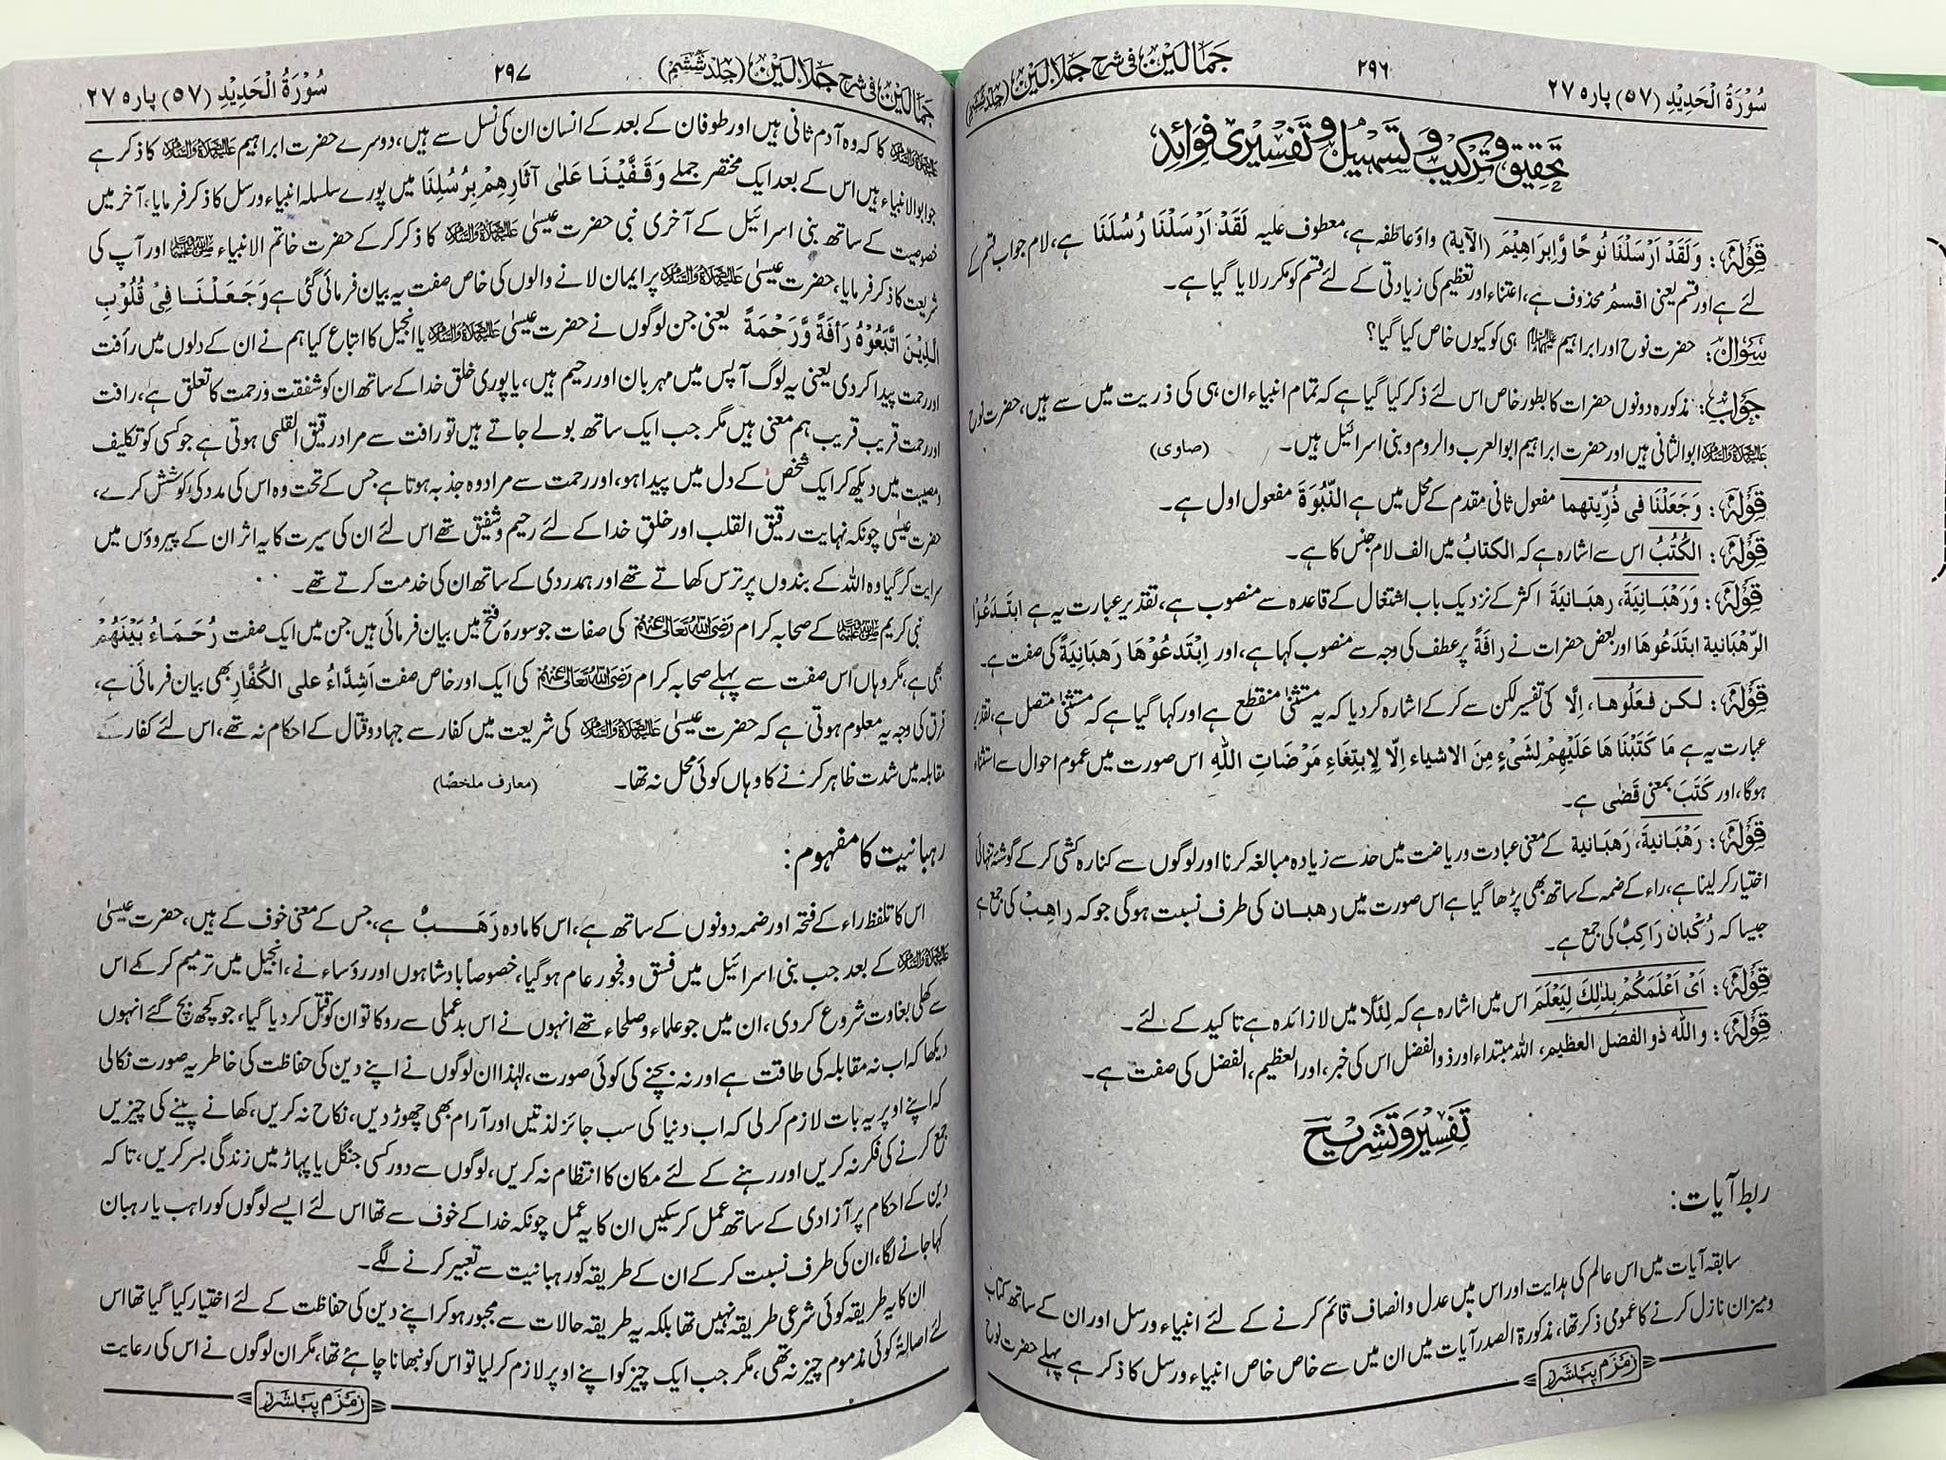 سُوْرَۃُ الْحَدِیْدِ (۵۷) پارہ ۲۷
۲۹۶
جَمَالَیْن فی شرح جَلَالَیْن (جلد ششم)
تحقیق و ترکیب و تسہیل و تفسیری فوائد
قولہ: وَلَقَدْ اَرْسَلْنَا نُوحًا وَّاِبْرَاهِیْمَ (الآیة) واؤ عاطفہ ہے، معطوف علیہ لَقَدْ اَرْسَلْنَا رُسُلَنَا ہے، لام جواب قسم کے
لئے ہے اور قسم یعنی اقسمُ محذوف ہے، اعتناء اور تعظیم کی زیادتی کے لئے قسم کو مکرر لایا گیا ہے۔
سوال: حضرت نوح اور ابراہیم علیہما السلام ہی کو کیوں خاص کیا گیا؟
جواب: مذکورہ دونوں حضرات کا بطور خاص اس لئے ذکر کیا گیا ہے کہ تمام انبیاء ان ہی کی ذریت میں سے ہیں، حضرت نوح
علیہ الصلاۃ والسلام ابو الثانی ہیں اور حضرت ابراہیم ابو العرب والروم و بنی اسرائیل ہیں۔ (صاوی)
قولہ: وَجَعَلْنَا فی ذُرِّیتهما مفعول ثانی مقدم کے محل میں ہے النُّبُوَةَ مفعول اول ہے۔
قولہ: الکُتُبُ اس سے اشارہ ہے کہ الکتابُ میں الف لام جنس کا ہے۔
قولہ: وَرَهْبَانِیَّةَ، رهبَانیَة اکثر کے نزدیک باب اشتغال کے قاعدہ سے منصوب ہے، تقدیر عبارت یہ ہے ابتَدَعُوْا
الرَّهْبَانیة ابتَدَعُوها اور بعض حضرات نے رافَةً پر عطف کی وجہ سے منصوب کہا ہے، اور اِبْتَدعُوْهَا رَهبَانِیَةً کی صفت ہے۔
قولہ: لکن فعَلُوها، اِلَّا کی تفسیر لکن سے کر کے اشارہ کر دیا کہ یہ مستثنیٰ منقطع ہے اور کہا گیا ہے کہ مستثنیٰ متصل ہے، تقدیر
عبارت یہ ہے مَا کَتَبْنَا هَا عَلَیْهِمْ لِشَیْءٍ مِنَ الاشیاء اِلّا لِاِبتِغَاءِ مَرْضَاتِ اللّٰهِ اس صورت میں عموم احوال سے استثناء
ہوگا، اور کَتَبَ بمعنی قَضٰی ہے۔
قولہ: رَهْبَانیةَ، رَهبَانیة کے معنی عبادت و ریاضت میں حد سے زیادہ مبالغہ کرنا اور لوگوں سے کنارہ کشی کر کے گوشۂ تنہائی
اختیار کر لینا ہے، راء کے ضمہ کے ساتھ بھی پڑھا گیا ہے اس صورت میں رهبان کی طرف نسبت ہوگی جو کہ راهبٌ کی جمع ہے
جیسا کہ رُکبان رَاکبٌ کی جمع ہے۔
قولہ: اَیْ اَعْلَمَکُمْ بِذٰلِكَ لِیَعْلَمَ اس میں اشارہ ہے کہ لِئَلَّا میں لا زائدہ ہے تاکید کے لئے۔
قولہ: واللّٰه ذو الفضل العظیم، اللہ مبتداء اور ذو الفضل اس کی خبر، اور العظیم، الفضل کی صفت ہے۔
تفسیر و تشریح
ربط آیات:
سابقہ آیات میں اس عالم کی ہدایت اور اس میں عدل و انصاف قائم کرنے کے لئے انبیاء و رسل اور ان کے ساتھ کتاب
و میزان نازل کرنے کا عمومی ذکر تھا، مذکورۃ الصدر آیات میں ان میں سے خاص خاص انبیاء و رسل کا ذکر ہے پہلے حضرت نوح
زمزم پبلشرز
سُوْرَۃُ الْحَدِیْدِ (۵۷) پارہ ۲۷
۲۹۷
جَمَالَیْن فی شرح جَلَالَیْن (جلد ششم)
علیہ الصلاۃ والسلام کا کہ وہ آدم ثانی ہیں اور طوفان کے بعد کے انسان ان کی نسل سے ہیں، دوسرے حضرت ابراہیم علیہ الصلاۃ والسلام کا ذکر ہے
جو ابوالانبیاء ہیں اس کے بعد ایک مختصر جملے وَقَفَّیْنَا عَلٰی آثَارِهِمْ بِرُسُلِنَا میں پورے سلسلہ انبیاء و رسل کا ذکر فرمایا، آخر میں
خصوصیت کے ساتھ بنی اسرائیل کے آخری نبی حضرت عیسیٰ علیہ الصلاۃ والسلام کا ذکر کر کے حضرت خاتم الانبیاء ﷺ اور آپ کی
شریعت کا ذکر فرمایا، حضرت عیسیٰ علیہ الصلاۃ والسلام پر ایمان لانے والوں کی خاص صفت یہ بیان فرمائی گئی ہے وَجَعَلْنَا فِیْ قُلُوْبِ
الَّذِیْنَ اتَّبَعُوْهُ رَأفَةً وَّرَحْمَةً یعنی جن لوگوں نے حضرت عیسیٰ علیہ الصلاۃ والسلام یا انجیل کا اتباع کیا ہم نے ان کے دلوں میں رأفت
اور رحمت پیدا کر دی یعنی یہ لوگ آپس میں مہربان اور رحیم ہیں، یا پوری خلق خدا کے ساتھ ان کو شفقت و رحمت کا تعلق ہے، رافت
اور رحمت قریب قریب ہم معنی ہیں مگر جب ایک ساتھ بولے جاتے ہیں تو رافت سے مراد رقیق القلبی ہوتی ہے جو کسی کو تکلیف
و مصیبت میں دیکھ کر ایک شخص کے دل میں پیدا ہو، اور رحمت سے مراد وہ جذبہ ہوتا ہے جس کے تحت وہ اس کی مدد کی کوشش کرے،
حضرت عیسیٰ چونکہ نہایت رقیق القلب اور خلقِ خدا کے لئے رحیم و شفیق تھے اس لئے ان کی سیرت کا یہ اثر ان کے پیروؤں میں
سرایت کر گیا وہ اللہ کے بندوں پر ترس کھاتے تھے اور ہمدردی کے ساتھ ان کی خدمت کرتے تھے۔
نبی کریم ﷺ کے صحابہ کرام رَضِیَ اللہُ تَعَالیٰ عَنْہُم کی صفات جو سورہ فتح میں بیان فرمائی ہیں جن میں ایک صفت رُحَمَاءُ بَیْنَهُمْ
بھی ہے، مگر وہاں اس صفت سے پہلے صحابہ کرام رَضِیَ اللہُ تَعَالیٰ عَنْہُم کی ایک اور خاص صفت اَشِدَّاءُ علی الکُفَّارِ بھی بیان فرمائی ہے،
فرق کی وجہ یہ معلوم ہوتی ہے کہ حضرت عیسیٰ علیہ الصلاۃ والسلام کی شریعت میں کفار سے جہاد و قتال کے احکام نہ تھے، اس لئے کفار کے
مقابلہ میں شدت ظاہر کرنے کا وہاں کوئی محل نہ تھا۔ (معارف ملخصًا)
رہبانیت کا مفہوم:
اس کا تلفظ راء کے فتحہ اور ضمہ دونوں کے ساتھ ہے، اس کا مادہ رَهَبٌ ہے، جس کے معنی خوف کے ہیں، حضرت عیسیٰ
علیہ الصلاۃ والسلام کے بعد جب بنی اسرائیل میں فسق و فجور عام ہو گیا، خصوصاً بادشاہوں اور رؤساء نے، انجیل میں ترمیم کر کے اس
سے کھلی بغاوت شروع کر دی، ان میں جو علماء و صلحاء تھے انہوں نے اس بدعملی سے روکا تو ان کو قتل کر دیا گیا، جو کچھ بچ گئے انہوں
دیکھا کہ اب نہ مقابلہ کی طاقت ہے اور نہ بچنے کی کوئی صورت، لہٰذا ان لوگوں نے اپنے دین کی حفاظت کی خاطر یہ صورت نکالی
کہ اپنے اوپر یہ بات لازم کر لی کہ اب دنیا کی سب جائز لذتیں اور آرام بھی چھوڑ دیں، نکاح نہ کریں، کھانے پینے کی چیزیں
جمع کرنے کی فکر نہ کریں اور رہنے کے لئے مکان کا انتظام نہ کریں، لوگوں سے دور کسی جنگل یا پہاڑ میں زندگی بسر کریں، تاکہ
دین کے احکام پر آزادی کے ساتھ عمل کر سکیں ان کا یہ عمل چونکہ خدا کے خوف سے تھا اس لئے ایسے لوگوں کو راہب یا رہبان
کہا جانے لگا، ان کی طرف نسبت کر کے ان کے طریقہ کو رہبانیت سے تعبیر کرنے لگے۔
ان کا یہ طریقہ کوئی شرعی طریقہ نہیں تھا بلکہ یہ طریقہ حالات سے مجبور ہو کر اپنے دین کی حفاظت کے لئے اختیار کیا گیا تھا اس
لئے اصالۃً کوئی مذموم چیز نہ تھی، مگر جب ایک چیز کو اپنے اوپر لازم کر لیا تو اس کو نبھانا چاہئے تھا، مگر ان لوگوں نے اس کی رعایت
زمزم پبلشرز